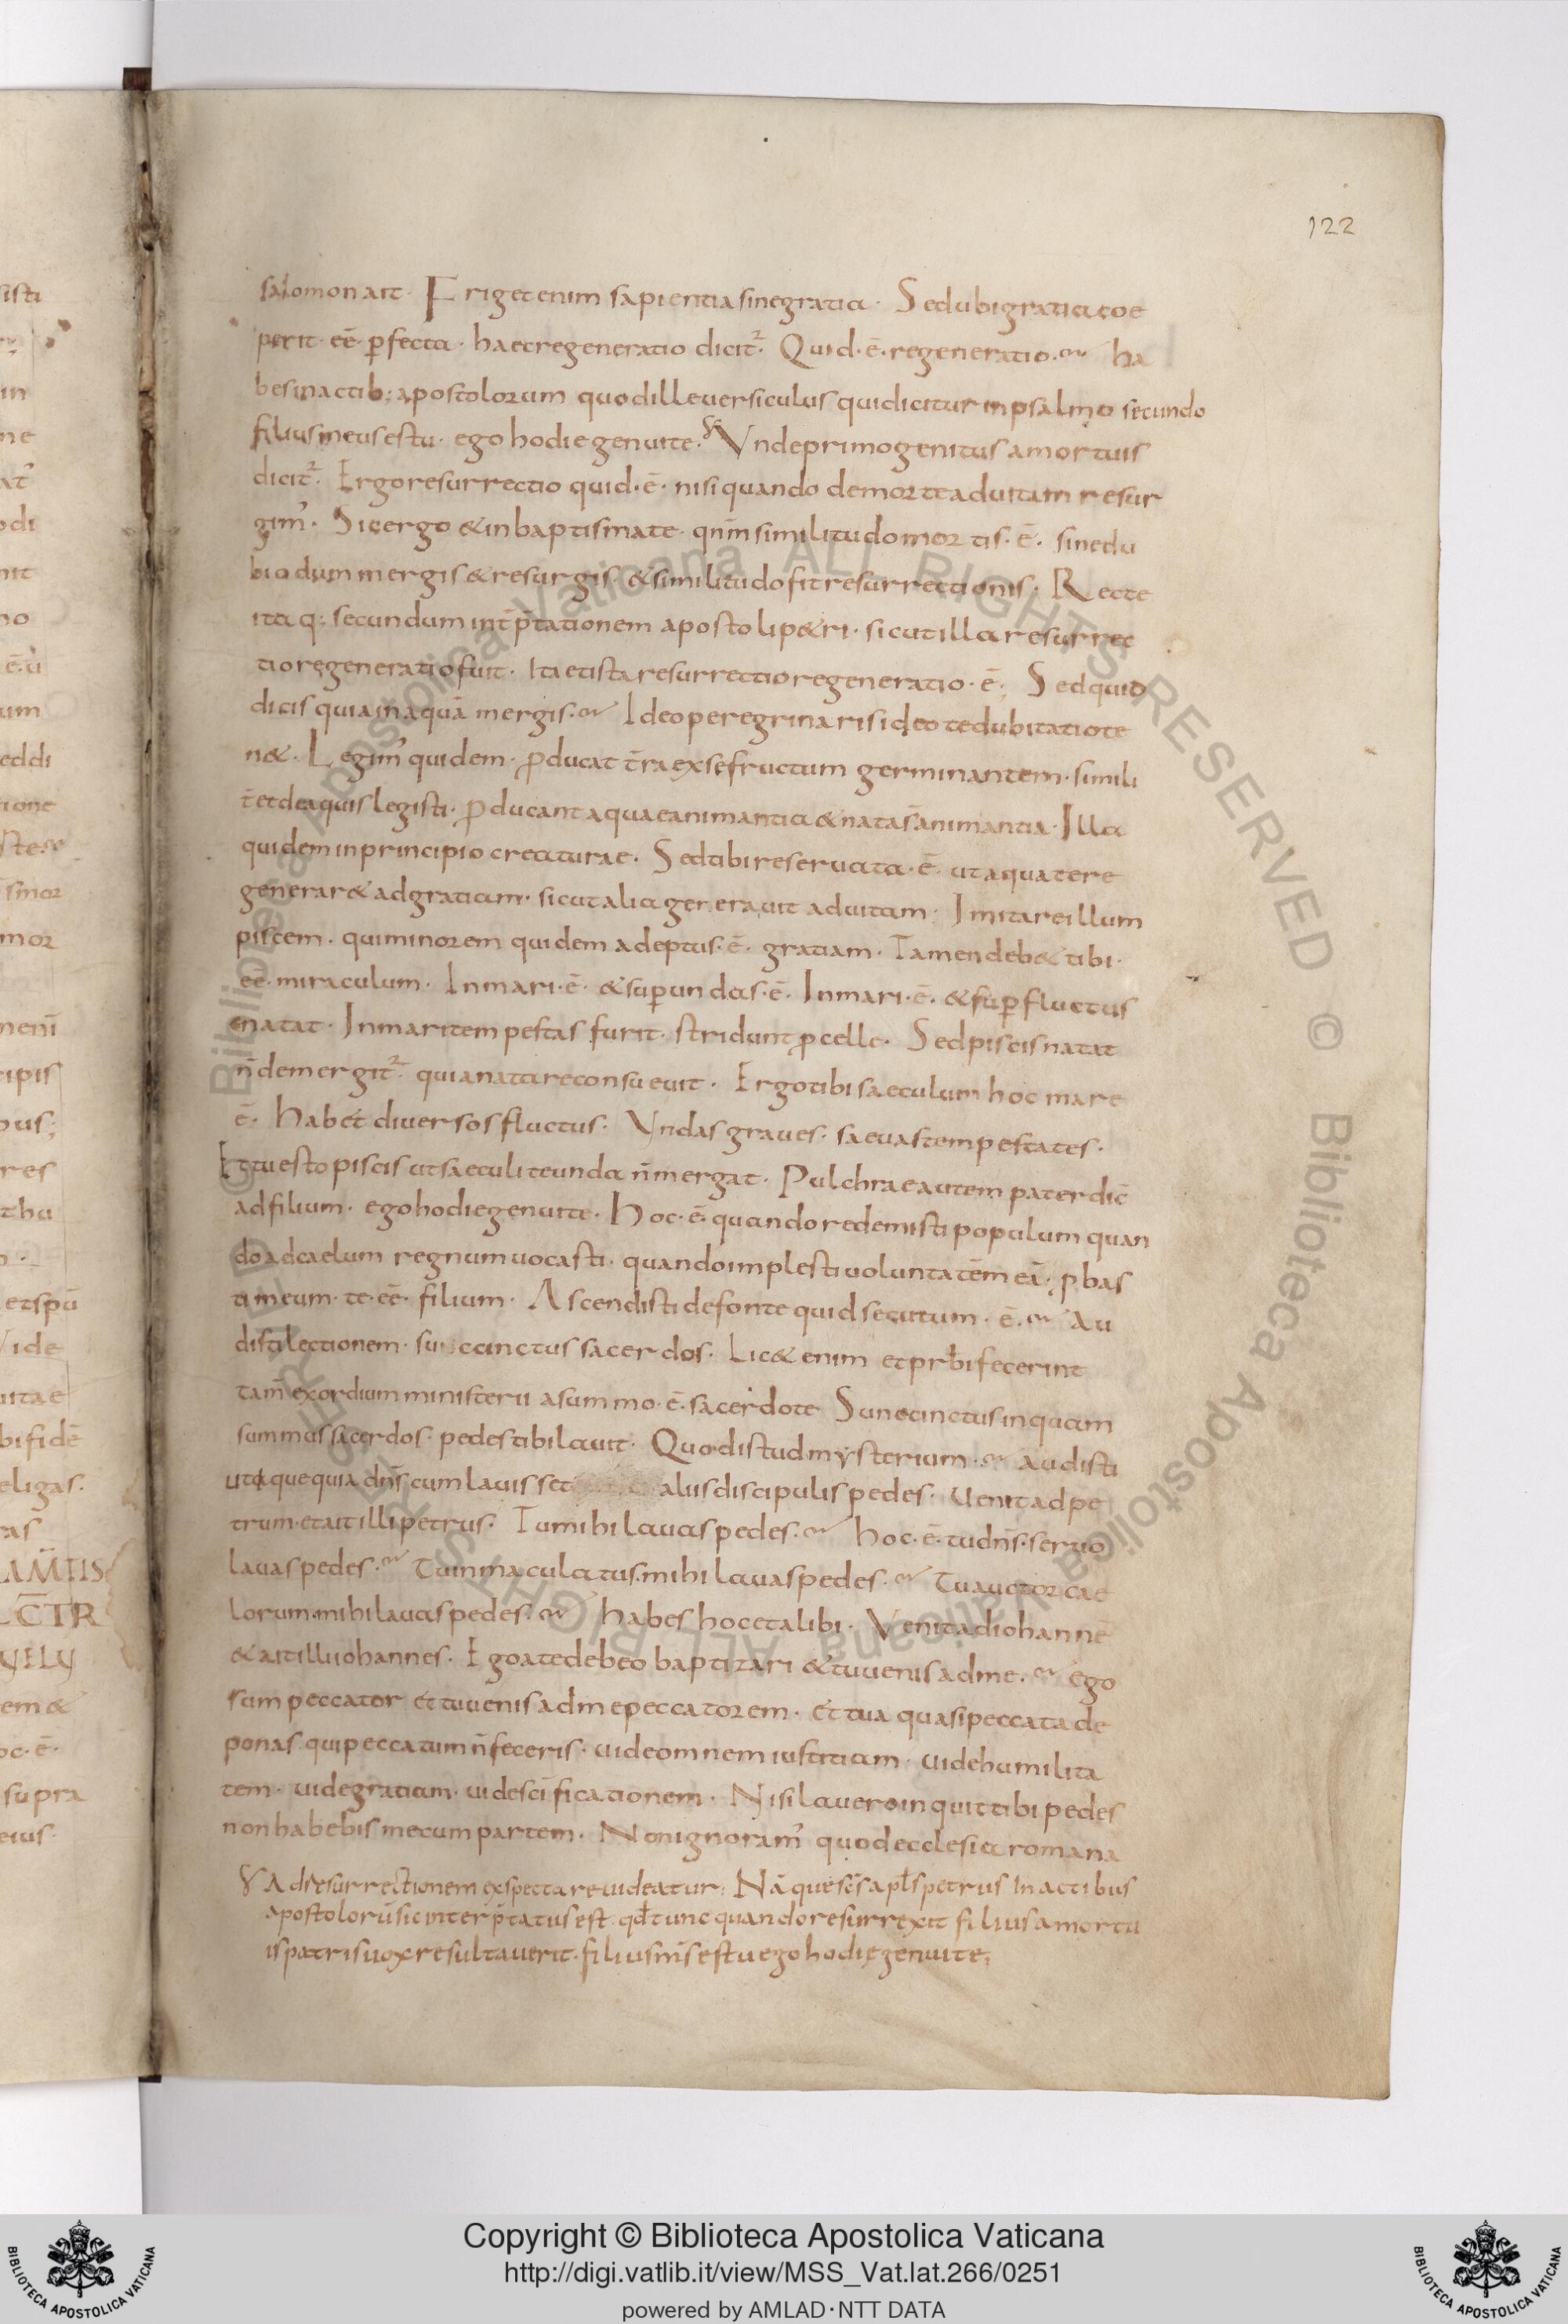 122
salomon ait · Friget enim sapientia sine gratia · Sed ubi gratia coe
perit · eē · ꝑfecta · haec regeneratio dicit᷑ · Quid · ē · regeneratio · ha
bes in actib; apostolorum quod ille uersiculus qui dicitur in psalmo secundo
filius meus es tu · ego hodie genui te · Unde primogenitus a mortuis
dicit᷑ · Ergo resurrectio quid · ē · nisi quando de morte ad uitam resur
gim᷒ · Sic ergo & in baptismate · qnm̄ similitudo mortis · ē · sine du
bio dum mergis & resurgis · & similitudo fit resurrectionis · Recte
itaq; secundum int̄p̄tationem apostoli p&ri · sicut illa resurrec
tio regeneratio fuit · Ita et ista resurrectio regeneratio · ē · Sed quid
dicis quia in aquā mergis · Ideo peregrinaris ideo te dubitatio te
n& · Legim᷒ quidem · ꝓducat t̄ra ex se fructum germinantem · simili
t̄ et de aquis legisti · ꝓducant aquae animantia & nata s̄ animantia · Illa
quidem in principio creaturae · Sed tibi reseruata · ē · ut aqua te re
generar& ad gratiam · sicut alia generauit ad uitam · Imitare illum
piscem · qui minorem quidem adeptus · ē · gratiam · Tamen deb& tibi ·
eē · miraculum · In mari · ē · & suꝑ undas · ē · In mari · ē · & suꝑ fluctus
natat · In mari tempestas furit · stridunt ꝓcelle · Sed piscis natat
n̄ demergit᷑ · quia natare consueuit · Ergo tibi saeculum hoc mare
ē · Habet diuersos fluctus · Undas graues · saeuas tempestates ·
Et tu esto piscis ut saeculi te unda n̄ mergat · Pulchrae autem pater dic̄
ad filium · ego hodie genui te · Hoc · ē · quando redemisti populum quan
do ad caelum regnum uocasti · quando implesti uoluntatem eā · ꝓbas
ti meum · te · eē · filium · Ascendisti de fonte quid secutum · ē · Au
disti lectionem · succinctus sacerdos · Lic& enim et prb̄i fecerint
tam̄ exordium ministerii a summo · ē · sacerdote Suncinctus inquam
summus sacerdos · pedes tibi lauit · Quod istud mysterium · audisti
utique quia dn̄s cum lauisset aliis discipulis pedes · Uenit ad pe
trum · et ait illi petrus · Tu mihi lauas pedes · hoc · ē · tu dn̄s · seruo
lauas pedes · Tu inmaculatus · mihi lauas pedes · Tu auctor cae
lorum · mihi lauas pedes · habes hoc et alibi · Uenit ad iohannē
& ait illi iohannes · Ego a te debeo baptizari & tu uenis ad me · ego
sum peccator et tu uenis ad me peccatorem · Et tua quasi peccata de
ponas qui peccatum n̄ feceris · uide omnem iustitiam · uide humilita
tem · uide gratiam · uide sc̄ificationem · Nisi lauero inquit tibi pedes
non habebis mecum partem · Non ignoram᷒ quod ecclesia romana
Ad resurrectionem exspectare uideatur; Nā que sc̄s apls petrus In actibus
apostolorū sic interp̄tatus est · qd̄ tunc quando resurrexit filius a mortu
is patris uox resultauerit · filius m̄s es tu ego hodie genui te;
Copyright © Biblioteca Apostolica Vaticana
http://digi.vatlib.it/view/MSS_Vat.lat.266/0251
powered by AMLAD·NTT DATA